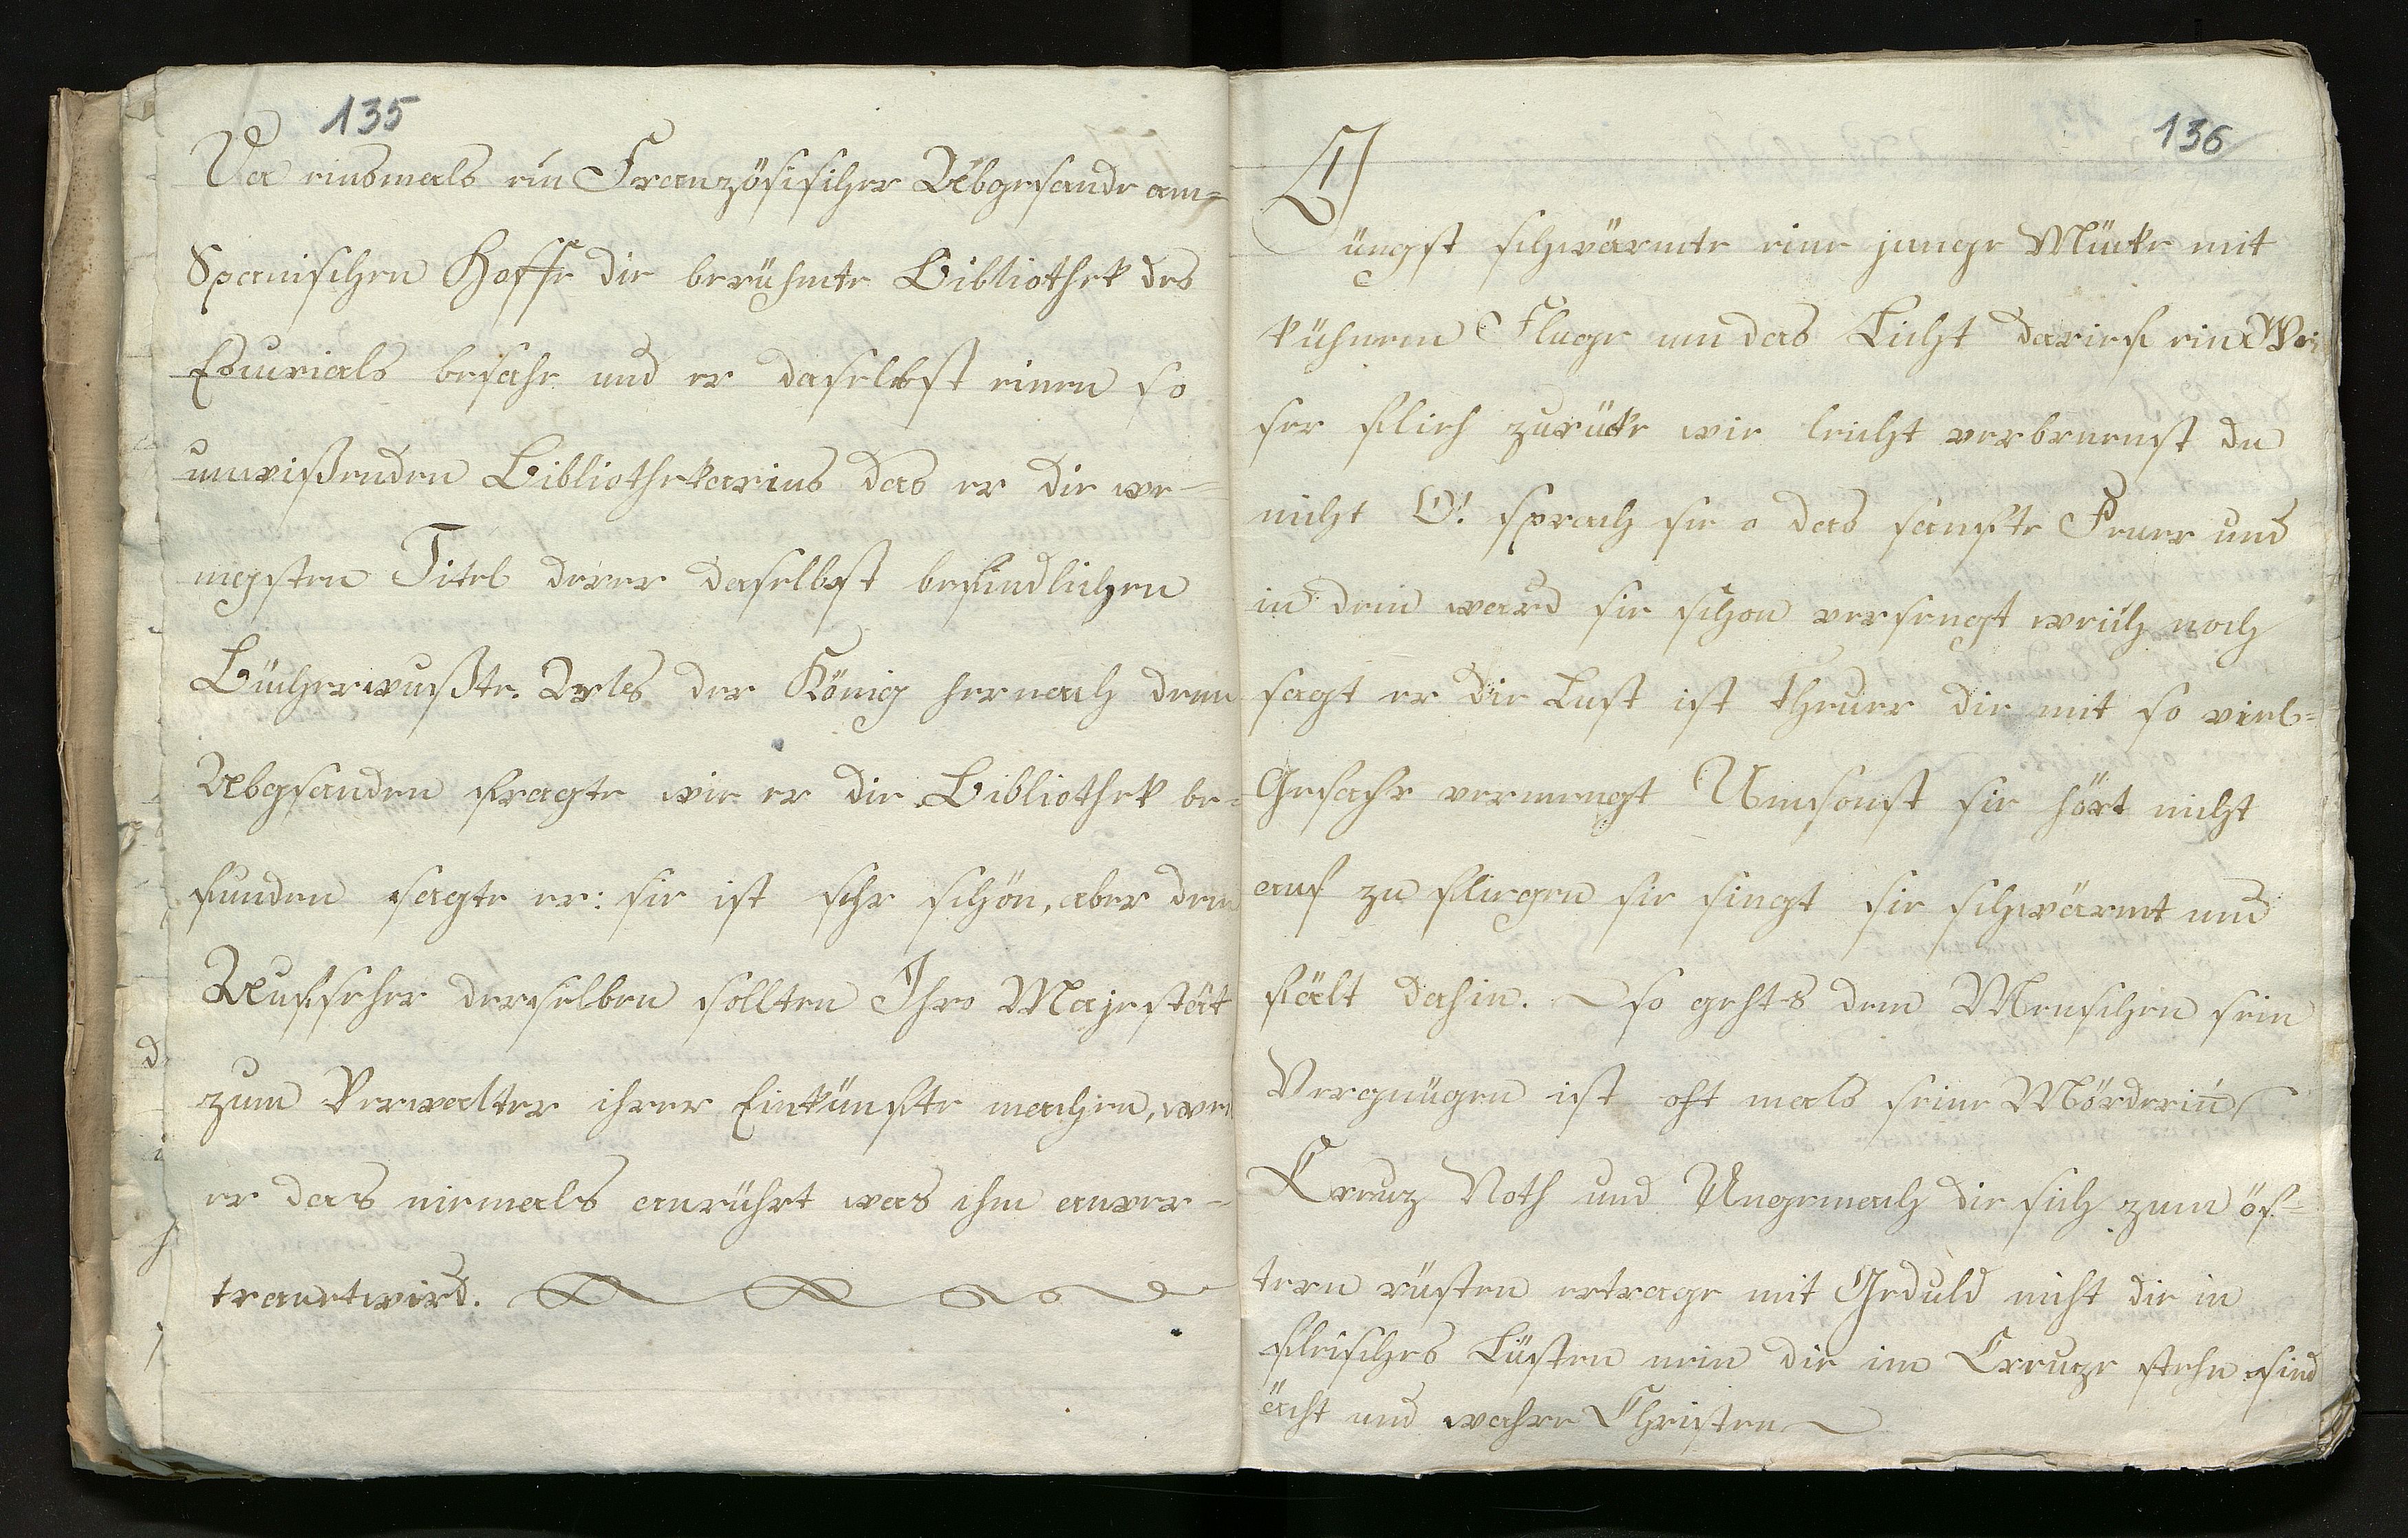 135
Da einsmals ein Französischer Abgesande am-
Spanischen Hoffe die berühmte Bibliothek des
Escurials besahe und er daselbst einen so
unwißenden Bibliothekarius das er die we-
nigsten Titel derer daselbst befindlichen
Bücher wußte. Als der König hernach dem
Abgsanden fragte wie er die Bibliothek be-
funden sagte er: sie ist sehr schön, aber dem
Aufseher derselben sollten Ihro Majestät
zum Verwalter ihrer Einkünfte machen, weil
er das niemals anrührt was ihm anver-
trauet wird.
136
Jüngst schwärmte eine junge Mücke mit
kühnem Fluge um das Licht da rief ein Wei
ser flieh zurücke wie leicht verbrennst du
nicht O! sprach sie o das sanfte Feuer und
in dem ward sie schon versengt weich noch
sagt er die Lust ist theuer die mit so viel-
Gefahr vermengt Umsonst sie hört nicht
auf zu fliegen sie singt sie schwärmt und
fält dahin. so gehts dem Menschen sein
Vergnügen ist oft mals seine Mörderin
Creuz Noth und Ungemach die sich zum öf-
tern rüsten ertrage mit Geduld nicht die in
fleisches Lüsten nein die im Creuze stehn sind
ächt und wahre Christen